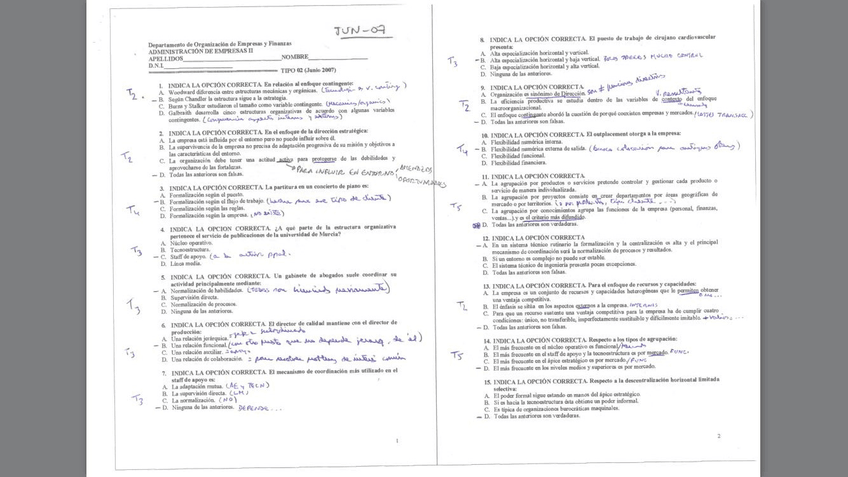 JUN-07
Departamento de Organización de Empresas y Finanzas
ADMINISTRACIÓN DE EMPRESAS II
APELLIDOS NOMBRE
D.N.I.
TIPO 02 (Junio 2007)
1. INDICA LA OPCIÓN CORRECTA. En relación al enfoque contingente:
A. Woodward diferencia entre estructuras mecánicas y orgánicas.
B. Según Chandler la estructura sigue a la estrategia.
C. Burns y Stalker estudiaron el tamaño como variable contingente.
D. Galbraith desarrolla cinco estructuras organizativas de acuerdo con algunas variables
contingentes.
T2
2. INDICA LA OPCIÓN CORRECTA. En el enfoque de la dirección estratégica:
A. La empresa está influida por el entorno pero no puede influir sobre él.
B. La supervivencia de la empresa no precisa de adaptación progresiva de su misión y objetivos a
las características del entorno.
C. La organización debe tener una actitud activa para protegerse de las debilidades y
aprovecharse de las fortalezas.
D. Todas las anteriores son falsas.
T2
PARA INFLUIR EN ENTORNO
AMENAZAS
OPORTUNIDADES
3. INDICA LA OPCIÓN CORRECTA. La partitura en un concierto de piano es:
A. Formalización según el puesto.
B. Formalización según el flujo de trabajo.
C. Formalización según las reglas.
D. Formalización según la empresa.
T4
4. INDICA LA OPCION CORRECTA. ¿A qué parte de la estructura organizativa
pertenece el servicio de publicaciones de la universidad de Murcia?
A. Núcleo operativo.
B. Tecnoestructura.
C. Staff de apoyo.
D. Línea media.
T3
5. INDICA LA OPCIÓN CORRECTA. Un gabinete de abogados suele coordinar su
actividad principalmente mediante:
A. Normalización de habilidades.
B. Supervisión directa.
C. Normalización de procesos.
D. Ninguna de las anteriores.
T3
6. INDICA LA OPCIÓN CORRECTA. El director de calidad mantiene con el director de
producción:
A. Una relación jerárquica.
B. Una relación funcional
C. Una relación auxiliar.
D. Una relación de colaboración.
T3
7. INDICA LA OPCIÓN CORRECTA. El mecanismo de coordinación más utilizado en el
staff de apoyo es:
A. La adaptación mutua. (AE y TECN)
B. La supervisión directa. (LM)
C. La normalización. (NO)
D. Ninguna de las anteriores. DEPENDE...
T3
1
8. INDICA LA OPCIÓN CORRECTA. El puesto de trabajo de cirujano cardiovascular
presenta:
A. Alta especialización horizontal y vertical.
B. Alta especialización horizontal y baja vertical. POCAS TAREAS MUCHO CONTROL
C. Baja especialización horizontal y alta vertical.
D. Ninguna de las anteriores.
T3
9. INDICA LA OPCIÓN CORRECTA.
A. Organización es sinónimo de Dirección.
B. La eficiencia productiva se estudia dentro de las variables de contexto del enfoque
macroorganizativo.
C. El enfoque contingente abordó la cuestión de por qué coexisten empresas y mercados
D. Todas las anteriores son falsas.
T2
10. INDICA LA OPCIÓN CORRECTA. El outplacement otorga a la empresa:
A. Flexibilidad numérica interna.
B. Flexibilidad numérica externa de salida.
C. Flexibilidad funcional.
D. Flexibilidad financiera.
T4
11. INDICA LA OPCIÓN CORRECTA.
A. La agrupación por productos o servicios pretende controlar y gestionar cada producto o
servicio de manera individualizada.
B. La agrupación por proyectos consiste en crear departamentos por áreas geográficas de
mercado o por territorios.
C. La agrupación por conocimientos agrupa las funciones de la empresa (personal, finanzas,
ventas...) y es el criterio más difundido.
D. Todas las anteriores son verdaderas.
T5
12. INDICA LA OPCIÓN CORRECTA
A. En un sistema técnico rutinario la formalización y la centralización es alta y el principal
mecanismo de coordinación será la normalización de procesos y resultados.
B. Si un entorno es complejo no puede ser estable.
C. El sistema técnico de ingeniería presenta pocas excepciones.
D. Todas las anteriores son falsas.
13. INDICA LA OPCIÓN CORRECTA. Para el enfoque de recursos y capacidades:
A. La empresa es un conjunto de recursos y capacidades heterogéneas que le permiten obtener
una ventaja competitiva.
B. El énfasis se sitúa en los aspectos externos a la empresa. INTERNOS
C. Para que un recurso sustente una ventaja competitiva para la empresa ha de cumplir cuatro
condiciones: único, no transferible, imperfectamente sustituible y difícilmente imitable.
D. Todas las anteriores son falsas.
T2
14. INDICA LA OPCIÓN CORRECTA. Respecto a los tipos de agrupación:
A. El más frecuente en el núcleo operativo es funcional
B. El más frecuente en el staff de apoyo y la tecnoestructura es por mercado. FUNC.
C. El más frecuente en el ápice estratégico es por mercado. FUNC
D. El más frecuente en los niveles medios y superiores es por mercado.
T5
15. INDICA LA OPCIÓN CORRECTA. Respecto a la descentralización horizontal limitada
selectiva:
A. El poder formal sigue estando en manos del ápice estratégico.
B. Si es hacia la tecnoestructura ésta obtiene un poder informal.
C. Es típica de organizaciones burocráticas maquinales.
D. Todas las anteriores son verdaderas.
2